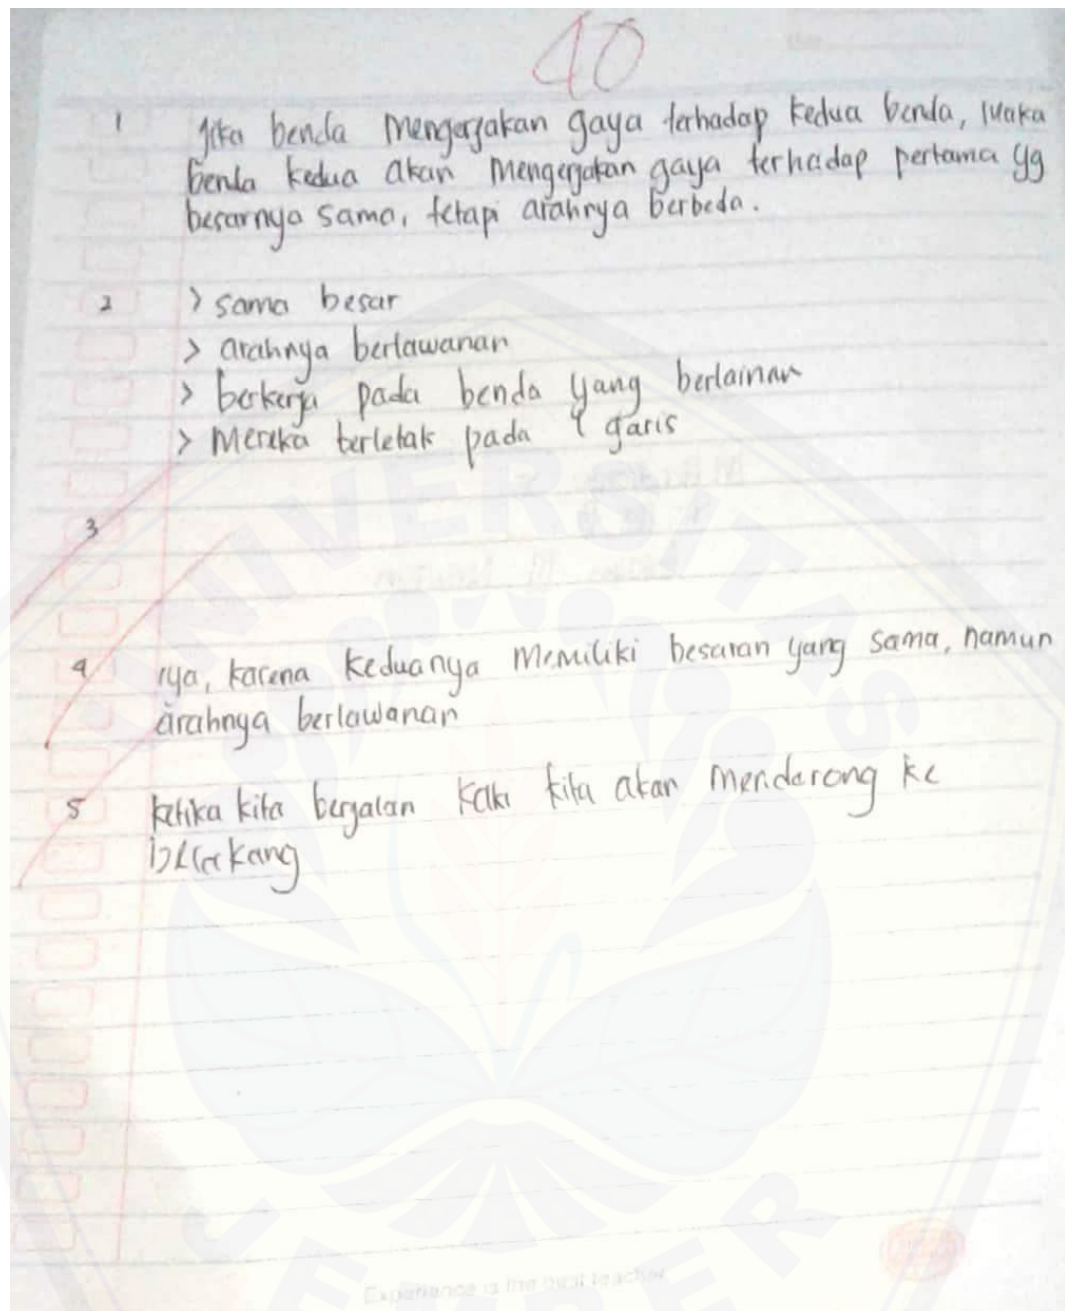 40
1 Jika benda mengerjakan gaya terhadap kedua benda, maka
benda kedua akan mengerjakan gaya terhadap pertama yg
besarnya sama, tetapi arahnya berbeda.
2 > sama besar
> arahnya berlawanan
> berkerja pada benda yang berlainan
> Mereka terletak pada 1 garis
3
4 iya, karena keduanya memiliki besaran yang sama, namun
arahnya berlawanan
5 ketika kita berjalan kaki kita akan mendorong ke
belakang
UNIVERSITAS
JEMBER
Experience is the best teacher